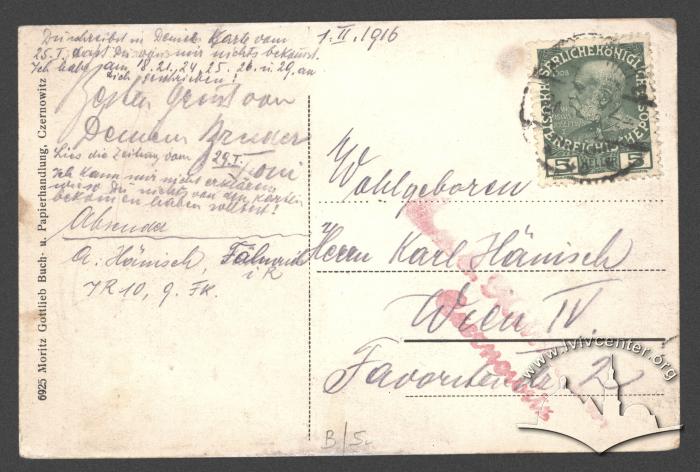 Du schreibst in Deiner Karte vom
25. I. dass Du von mir nichts bekommst.
Ich habe am 18. 21. 24. 25. 26. u 29. an
Dich geschrieben!
1. II. 1916
Besten Gruß von
Deinem Bruder
Toni
Lies die Zeitung vom 29 I.
Ich kann mir nicht erklären
wieso Du nichts von den Karten
bekommen haben solltest!
Absender
A. Hänisch, Fähnrich
i R
IR 10, 9. FK.
6925 Moritz Gottlieb Buch- u. Papierhandlung, Czernowitz
Wohlgeboren
Herrn Karl Hänisch
Wien IV.
Favoritenstr. 2
5 HELLER 5
1908
Czernowitz
B/5.
www.lvivcenter.org